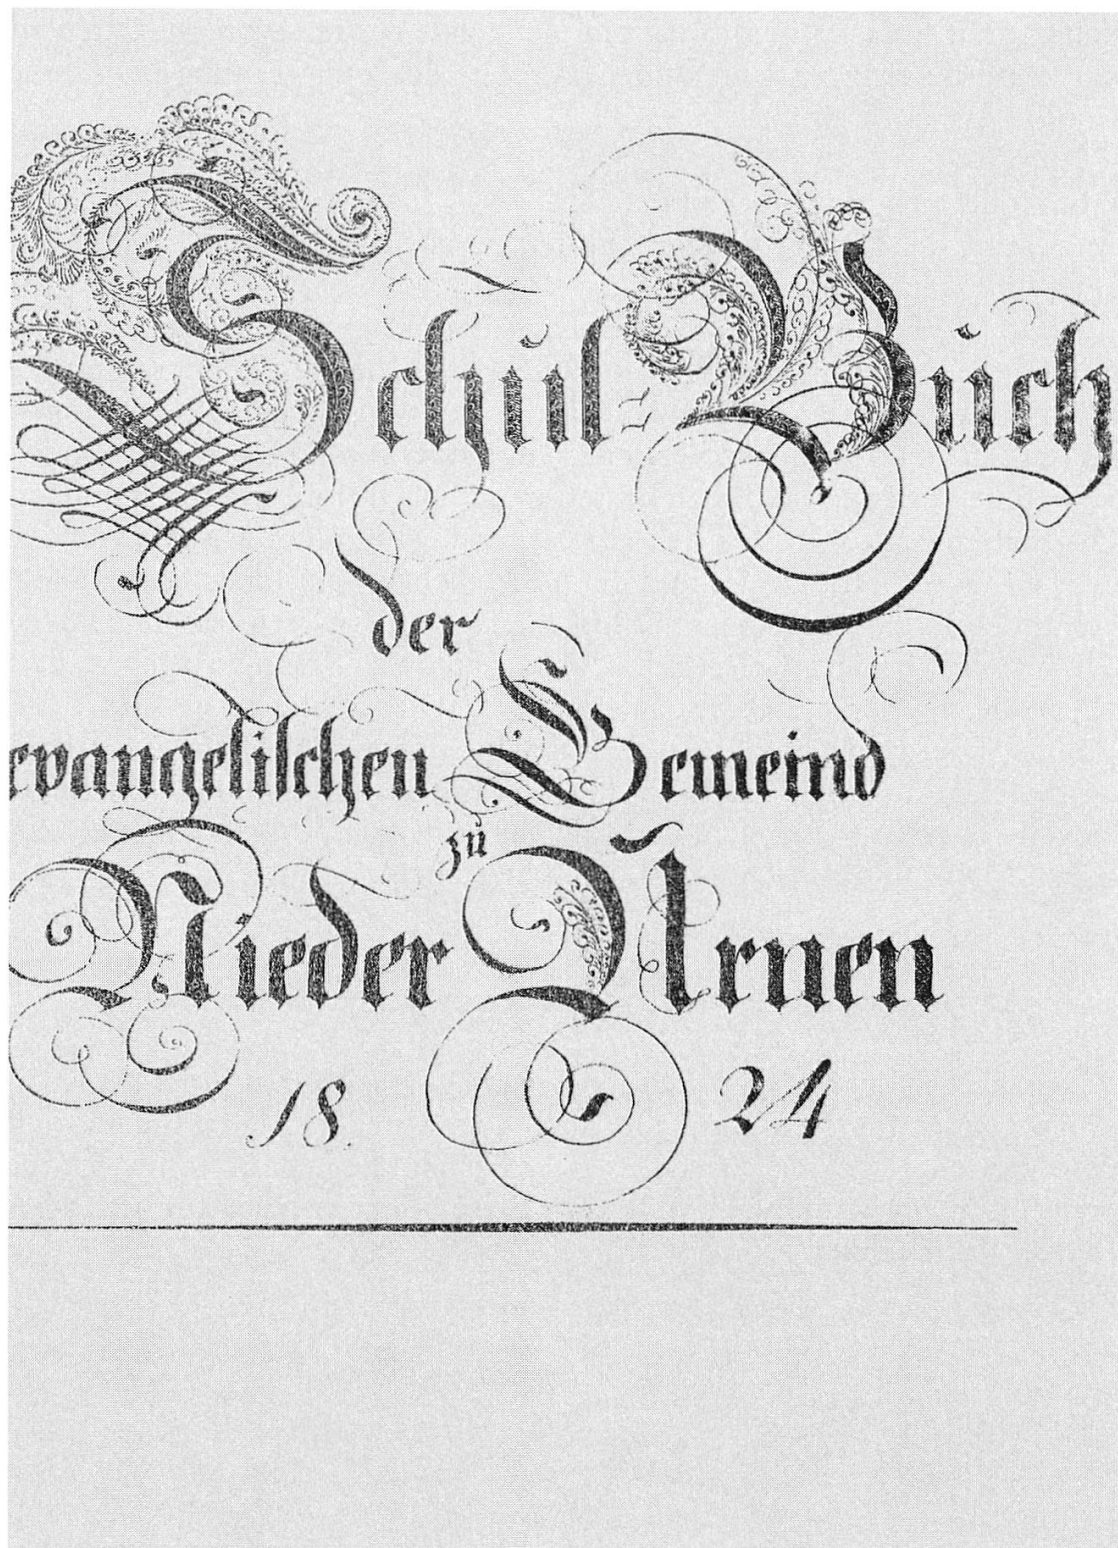 Schul=Buch
der
evangelischen Gemeind
zu
Nieder Urnen
18 24